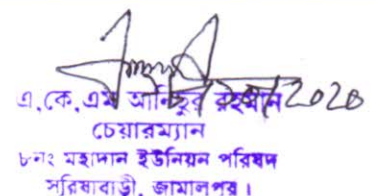 এ,কে,এম আনিছুর রহমান
চেয়ারম্যান
৮নং মহাদান ইউনিয়ন পরিষদ
সরিষাবাড়ী, জামালপুর।